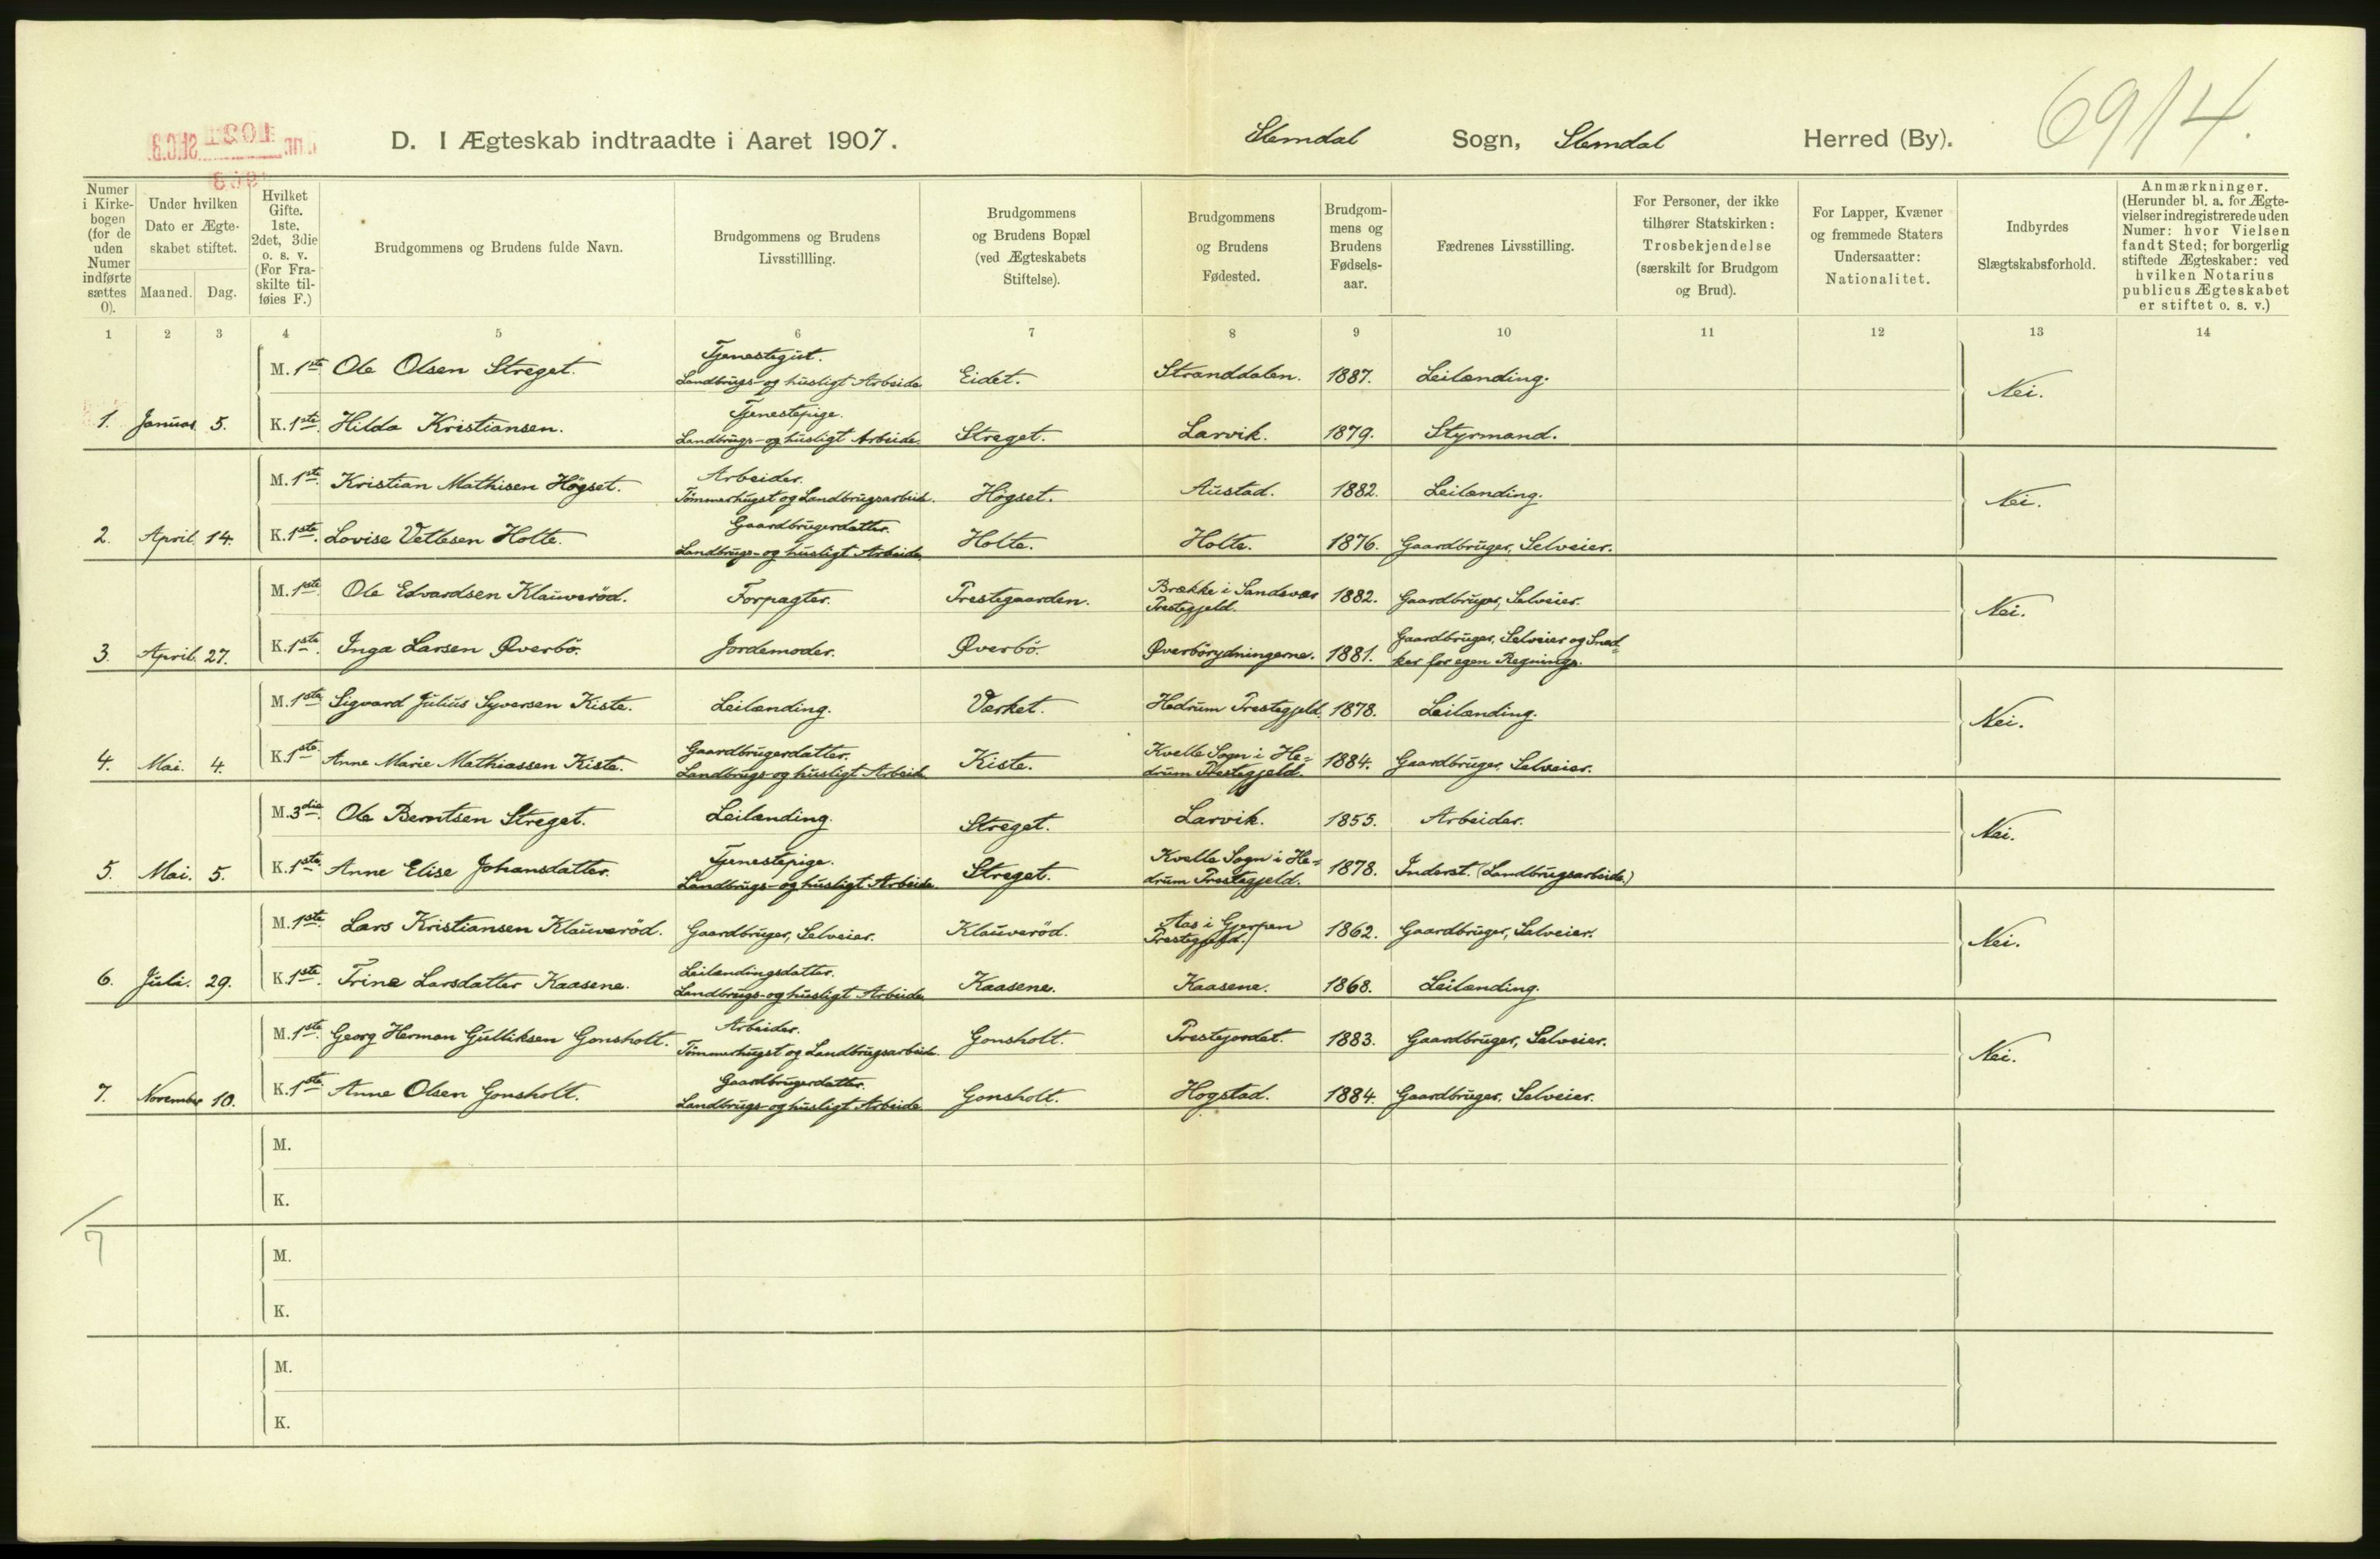 D. I Ægteskab indtraadte i Aaret 1907. Slemdal Sogn, Slemdal Herred (By). 69/14.
Numer i Kirkebogen (for de uden Numer indførte sættes 0).
Under hvilken Dato er Ægteskabet stiftet.
Maaned. Dag.
Hvilket Gifte. 1ste, 2det, 3die o. s. v. (For Fraskilte tilføies F.)
Brudgommens og Brudens fulde Navn.
Brudgommens og Brudens Livsstillling.
Brudgommens og Brudens Bopæl (ved Ægteskabets Stiftelse).
Brudgommens og Brudens Fødested.
Brudgommens og Brudens Fødselsaar.
Fædrenes Livsstilling.
For Personer, der ikke tilhører Statskirken: Trosbekjendelse (særskilt for Brudgom og Brud).
For Lapper, Kvæner og fremmede Staters Undersaatter: Nationalitet.
Indbyrdes Slægtskabsforhold.
Anmærkninger. (Herunder bl. a. for Ægtevielser indregistrerede uden Numer: hvor Vielsen fandt Sted; for borgerlig stiftede Ægteskaber: ved hvilken Notarius publicus Ægteskabet er stiftet o. s. v.)
1 2 3 4 5 6 7 8 9 10 11 12 13 14
M. 1ste Ole Olsen Streget. Tjenestegut. Landbrugs- og husligt Arbeide Eidet. Stranddalen. 1887. Leilænding. Nei.
1. Januar 5. K. 1ste. Hilda Kristiansen. Tjenestepige. Landbrugs- og husligt Arbeide. Streget. Larvik. 1879. Styrmand.
M. 1ste. Kristian Mathisen Högset. Arbeider. Tömmerhugst og Landbrugsarbeid. Högset. Austad. 1882. Leilænding. Nei.
2. April. 14. K. 1ste. Lovise Vetlesen Holte. Gaardbrugerdatter. Landbrugs- og husligt Arbeide. Holte. Holte. 1876. Gaardbruger, Selveier.
M. 1ste. Ole Edvardsen Klauveröd. Forpagter. Prestegaarden. Brække i Sandevær Prestegjeld. 1882. Gaardbruger, Selveier. Nei.
3. April. 27. K. 1ste. Inga Larsen Øverbö. Jordemoder. Øverbö. Øverbörydningerne. 1881. Gaardbruger, Selveier og Snedker for egen Regning.
M. 1ste Sigvard Julius Syversen Kiste. Leilænding. Værket. Hedrum Prestegjeld. 1878. Leilænding. Nei.
4. Mai. 4. K. 1ste Anne Marie Mathiassen Kiste. Gaardbrugerdatter. Landbrugs- og husligt Arbeide. Kiste. Kvelle Sogn i Hedrum Prestegjeld. 1884. Gaardbruger. Selveier.
M. 3die. Ole Berntsen Streget. Leilænding. Streget. Larvik. 1855. Arbeider. Nei.
5. Mai. 5. K. 1ste Anne Elise Johansdatter. Tjenestepige. Landbrugs- og husligt Arbeide. Streget. Kvelle Sogn i Hedrum Prestegjeld. 1878. Inderst. (Landbrugsarbeide.)
M. 1ste. Lars Kristiansen Klauveröd. Gaardbruger, Selveier. Klauveröd. Aas i Gjerpen Prestegjeld. 1862. Gaardbruger, Selveier. Nei.
6. Juli. 29. K. 1ste. Trine Larsdatter Kaasene. Leilændingsdatter. Landbrugs- og husligt Arbeide. Kaasene. Kaasene. 1868. Leilænding.
M. 1ste. Georg Herman Gulliksen Gonsholt. Arbeider. Tömmerhugst og Landbrugsarbeid. Gonsholt. Prestejordet. 1883. Gaardbruger, Selveier. Nei.
7. November 10. K. 1ste Anne Olsen Gonsholt. Gaardbrugerdatter. Landbrugs- og husligt Arbeide Gonsholt. Hogstad. 1884. Gaardbruger. Selveier.
M.
K.
7
M.
K.
M.
K.